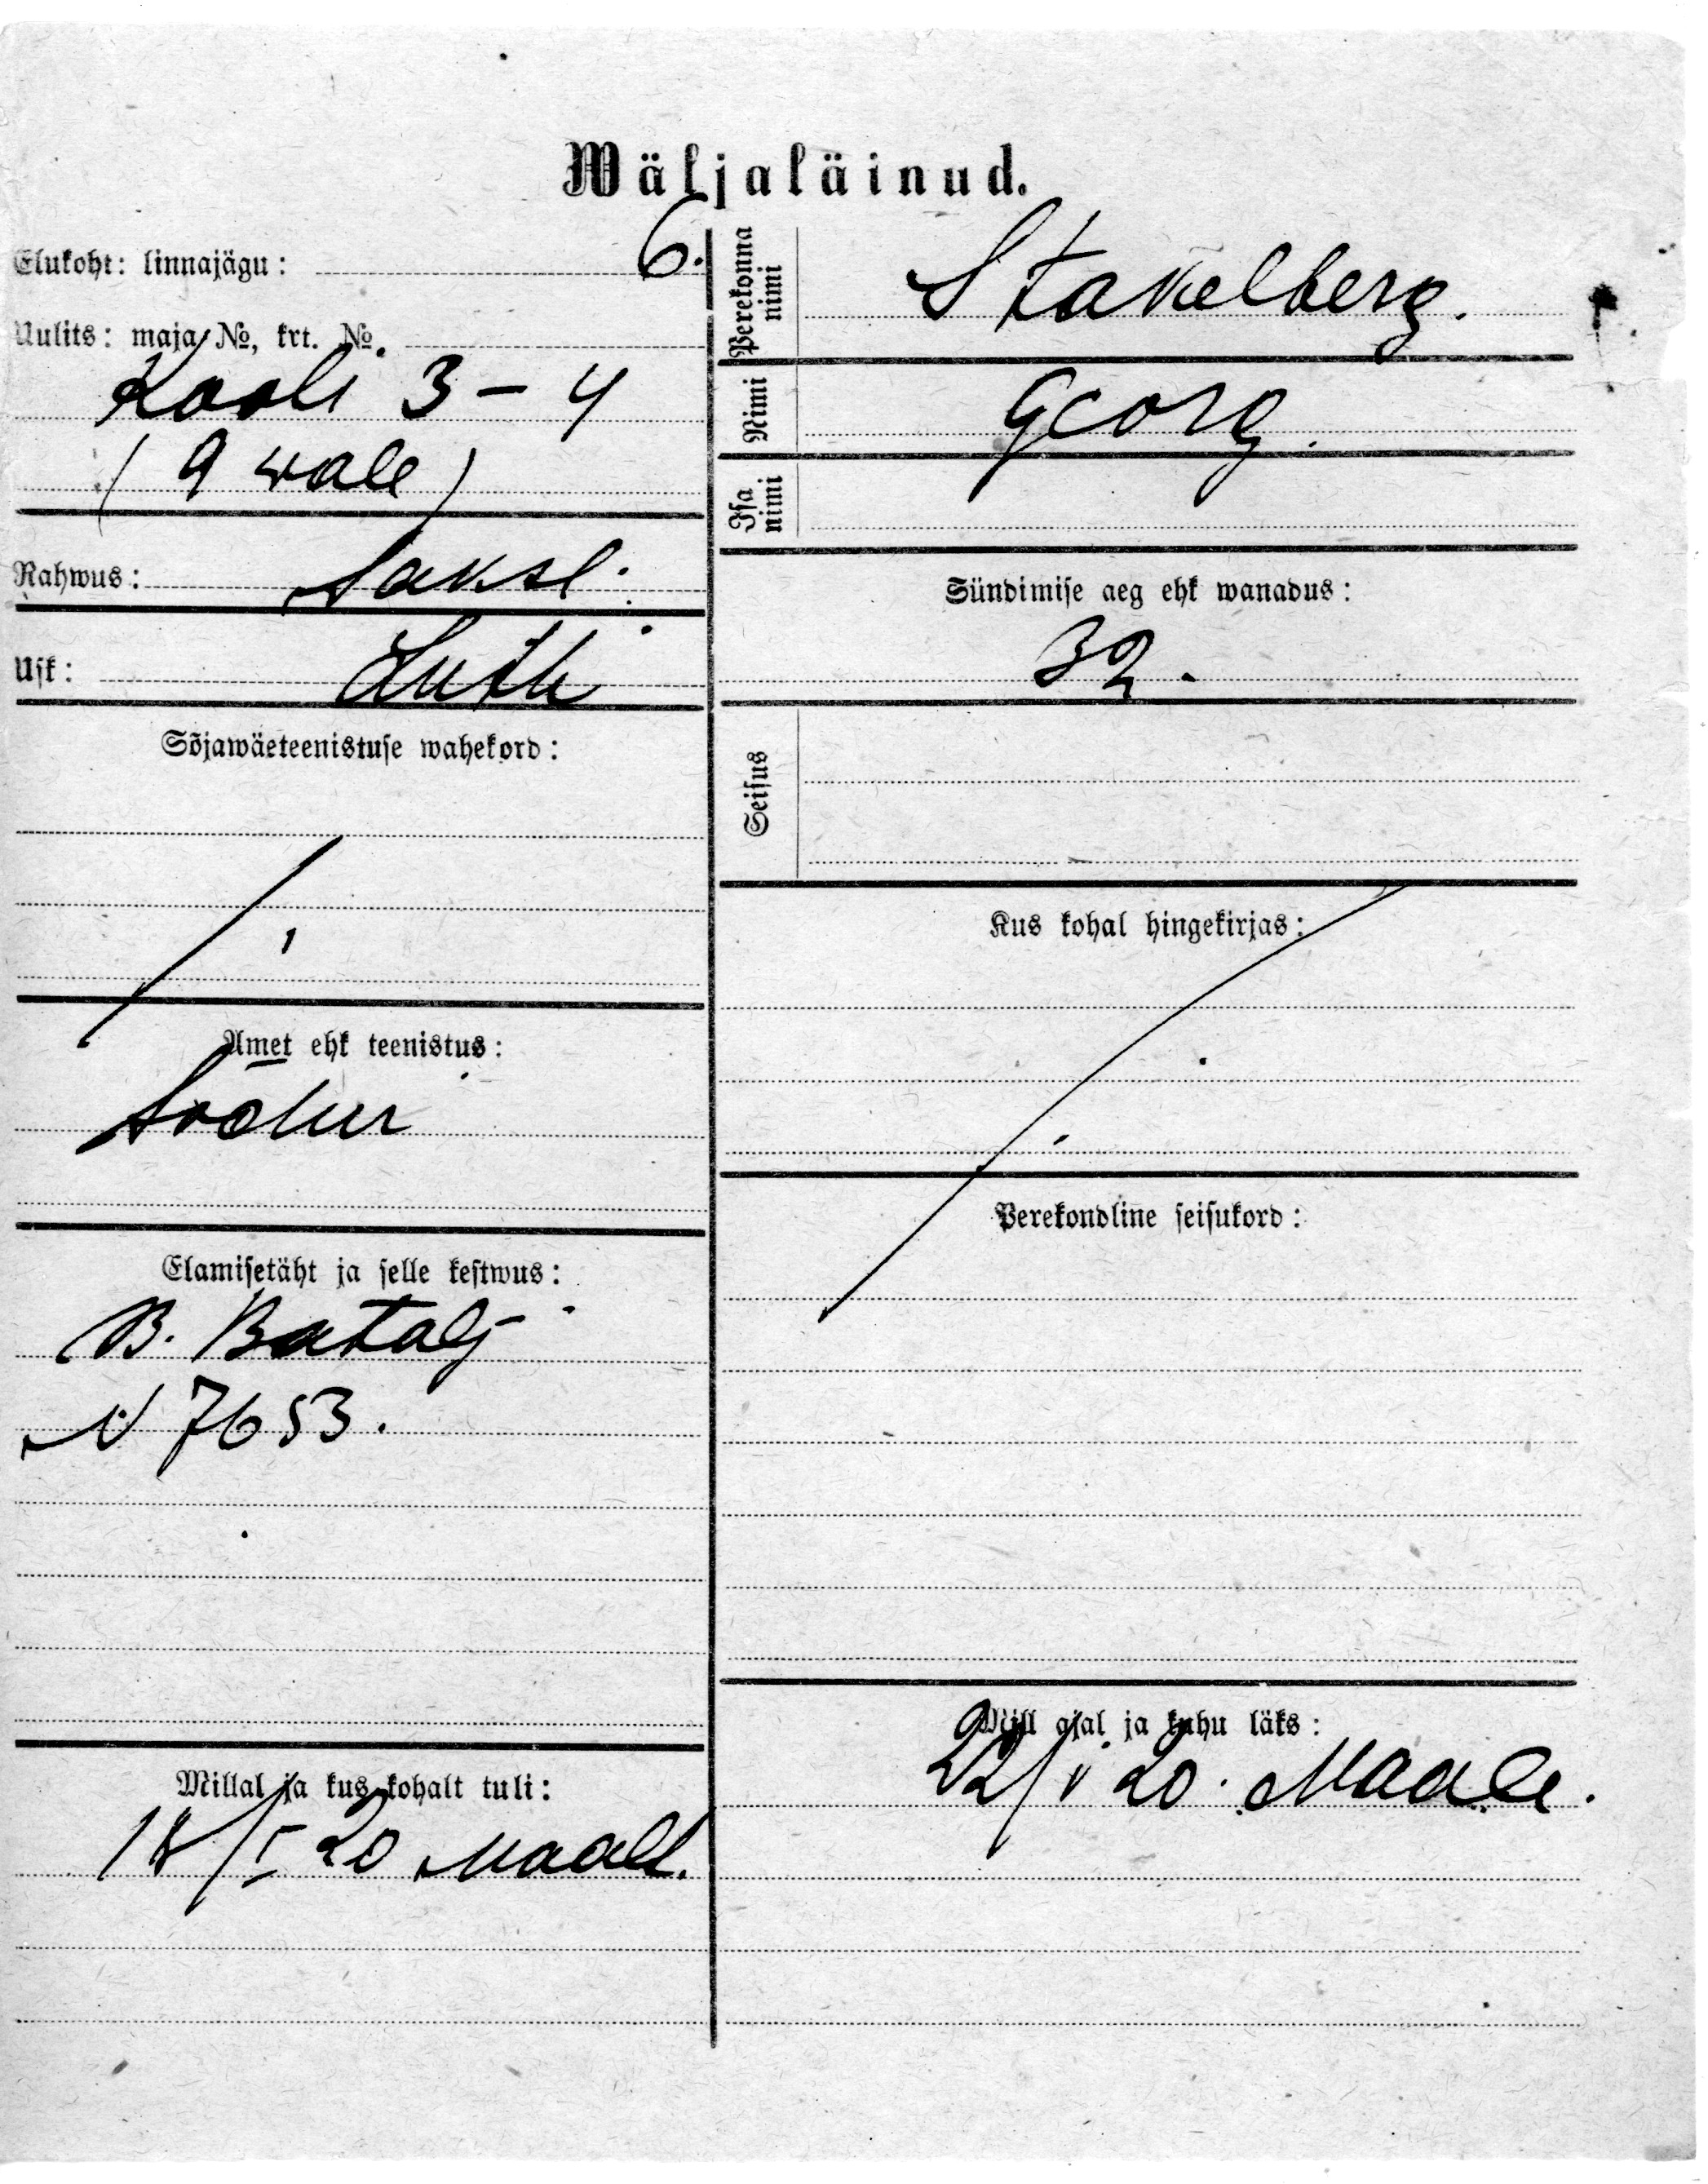 Wäljaläinud.
Elukoht: linnajägu: 6.
Uulits: maja №, krt. №.
Kooli 3 – 4
(9 wale)
Rahwus: Saksl.
Usk: Luth
Sõjawäeteenistuse wahekord:
Amet ehk teenistus:
Sõdur
Elamisetäht ja selle kestwus:
B. Batalj
N 7653.
Millal ja kus kohalt tuli:
18/I 20 Maalt.
Perekonna nimi Stakelberg.
Nimi Georg.
Isa nimi
Sündimise aeg ehk wanadus:
32.
Seisus
Kus kohal hingekirjas:
Perekondline seisukord:
Mill ajal ja kuhu läks:
22/V 20. Maale.